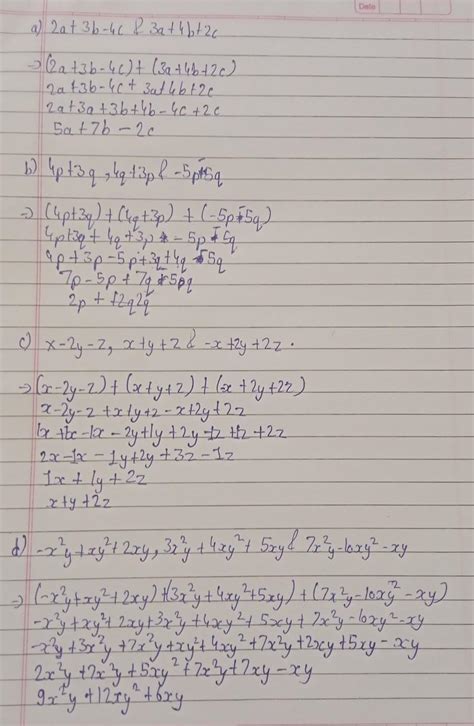 Date
a) 2a+3b-4c & 3a+4b+2c
→ (2a+3b-4c)+(3a+4b+2c)
2a+3b-4c+3a+4b+2c
2a+3a+3b+4b-4c+2c
5a+7b-2c
b) 4p+3q, 4q+3p & -5p-5q
→ (4p+3q)+(4q+3p)+(-5p-5q)
4p+3q+4q+3p-5p-5q
4p+3p-5p+3q+4q-5q
7p-5p+7q-5q
2p+2q
c) x-2y-z, x+y+z & -x+2y+2z.
→ (x-2y-z)+(x+y+z)+(-x+2y+2z)
x-2y-z+x+y+z-x+2y+2z
1x+1x-1x-2y+1y+2y-1z+1z+2z
2x-1x-1y+2y+3z-1z
1x+1y+2z
x+y+2z
d) -x²y+xy²+2xy, 3x²y+4xy²+5xy & 7x²y-10xy²-xy
→ (-x²y+xy²+2xy)+(3x²y+4xy²+5xy)+(7x²y-10xy²-xy)
-x²y+xy²+2xy+3x²y+4xy²+5xy+7x²y-10xy²-xy
-x²y+3x²y+7x²y+xy²+4xy²+7x²y+2xy+5xy-xy
2x²y+7x²y+5xy²+7x²y+7xy-xy
9x²y+12xy²+6xy